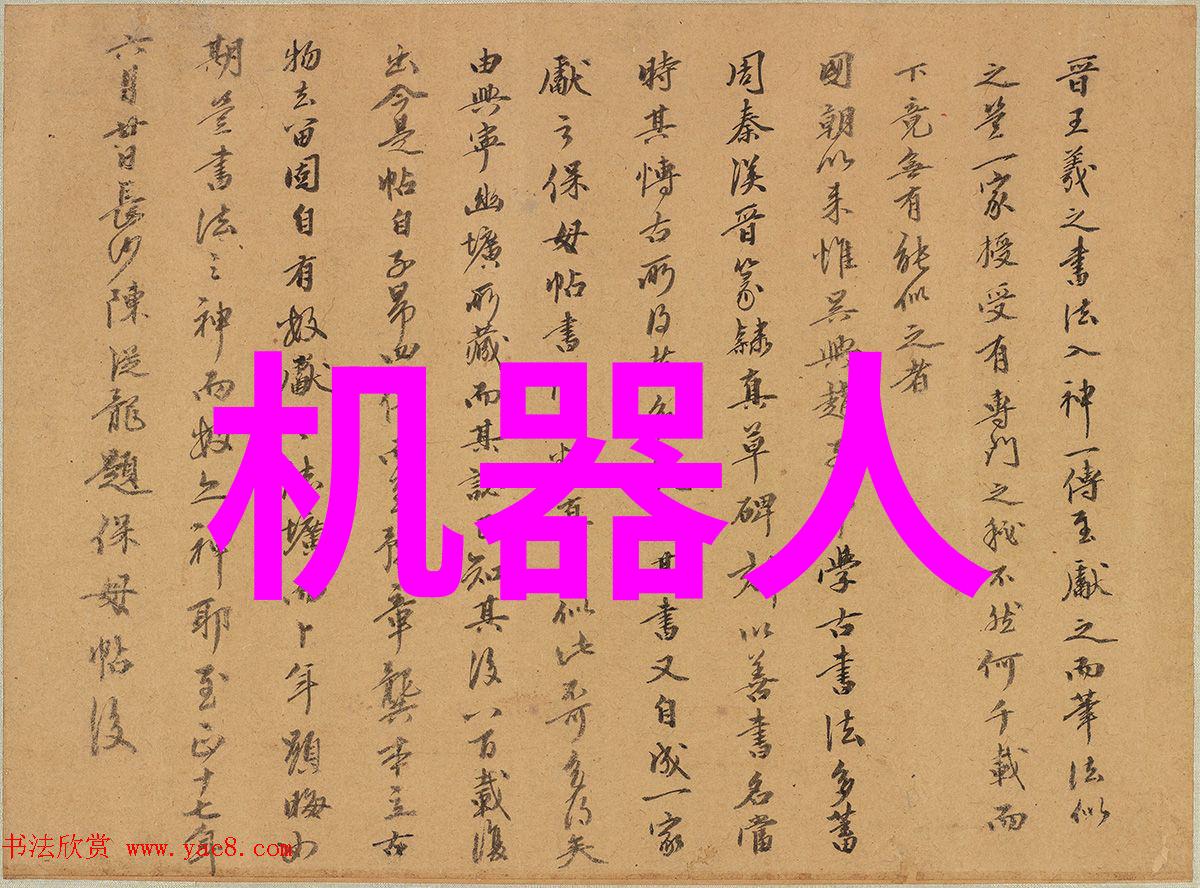 晉王羲之書法入神一傳至獻之而筆法似
之豈一家授受有專門之秘不然何千載而
下竟無有能似之者
國朝以来惟吴興趙學古書法多蓄
周秦漢晉篆隸真草碑刻以善書名當
時其博古所得其書又自成一家
獻之保母帖書似此不可多得矣
由興寧幽壙所藏而其知其後八百載復
出今是帖自子昂章龔本立古
物去留固自有數獻年顯晦由
期豈書法之神而數之神耶至正十七年
六月廿日長沙陳從龍題保母帖後
机器人
书法欣赏 www.yac8.com